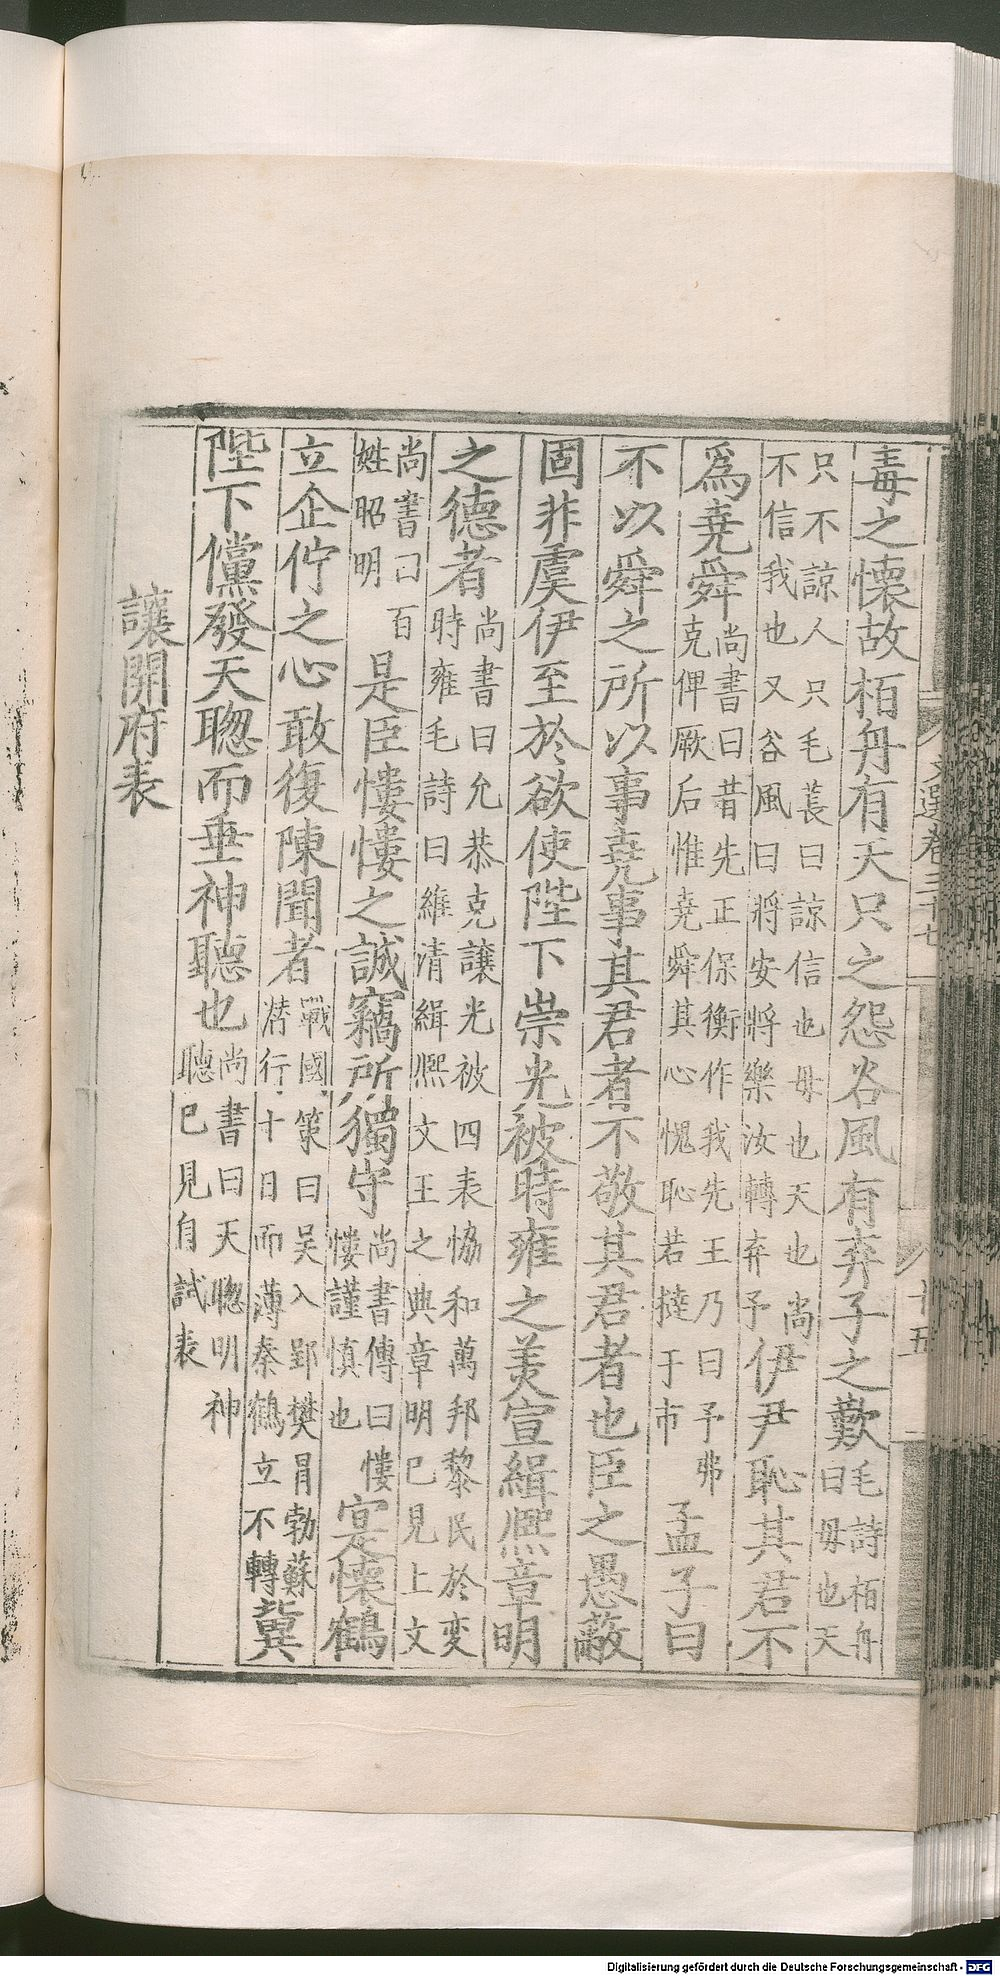 文選卷三十七
十五
毒之懷故柏舟有天只之怨谷風有弃子之歎毛詩柏舟曰毋也天
只不諒人只毛萇曰諒信也毋也天也尚不信我也又谷風曰將安將樂汝轉弃予伊尹恥其君不
爲堯舜尚書曰昔先正保衡作我先王乃曰予弗克俾厥后惟堯舜其心愧恥若撻于市孟子曰
不以舜之所以事堯事其君者不敬其君者也臣之愚蔽
固非虞伊至於欲使陛下崇光被時雍之美宣緝熈章明
之德者尚書曰允恭克讓光被四表恊和萬邦黎民於变時雍毛詩曰維清緝熈文王之典章明已見上文
尚書曰百姓昭明是臣慺慺之誠竊所獨守尚書傳曰慺慺謹慎也寔懷鶴
立企佇之心敢復陳聞者戰國策曰吴入郢樊冒勃蘇潛行十日而薄秦鶴立不轉冀
陛下儻發天聦而垂神聽也尚書曰天聦明神聽已見自試表
讓開府表
Digitalisierung gefördert durch die Deutsche Forschungsgemeinschaft - DFG